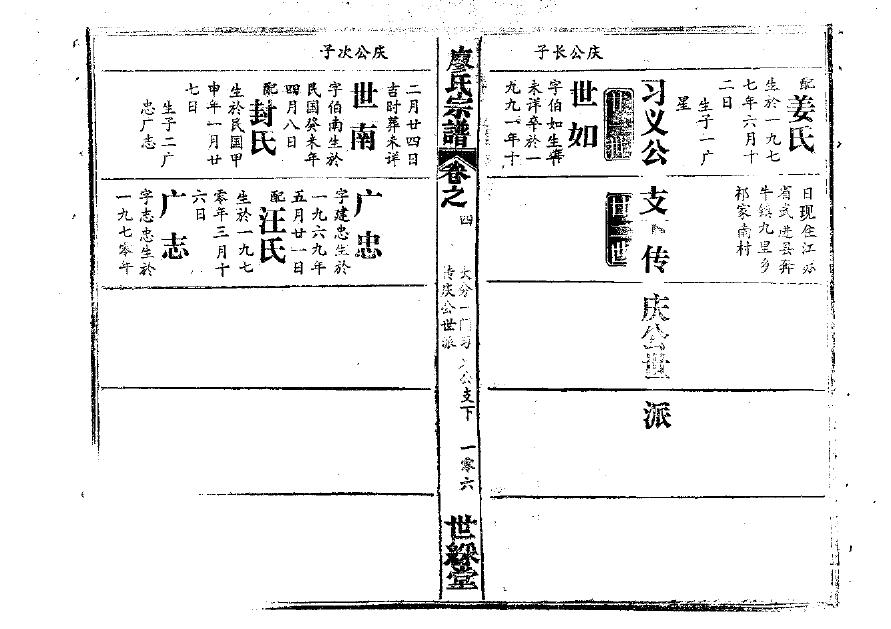 庆公长子
配姜氏
生於一九七
七年六月十
二日
生子一广
星
日现住江苏
省武进县奔
牛镇九里乡
祁家南村
习义公支下传庆公世派
世如
字伯如生葬
未详卒於一
九九一年十
廖氏宗譜
卷之四
大分一门习义公支下
传庆公世派
一零六
世綵堂
庆公次子
二月廿四日
吉时葬未详
世南
字伯南生於
民国癸未年
四月八日
配封氏
生於民国甲
申年一月廿
七日
生子二广
忠广志
广忠
字建忠生於
一九六九年
五月廿一日
配汪氏
生於一九七
零年三月十
六日
广志
字志忠生於
一九七零年